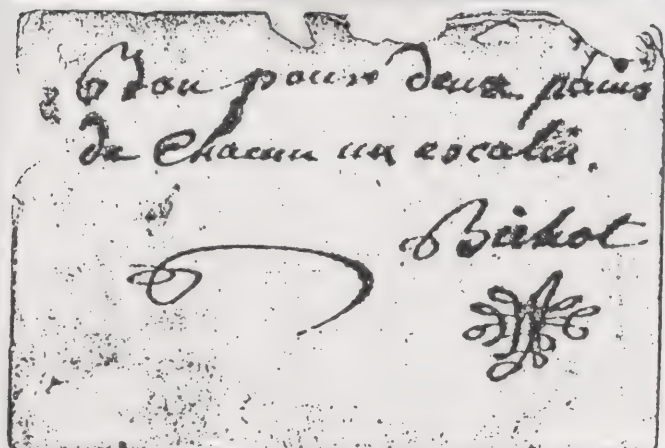 Bon pour deux pains
de Chacun un escalin.
Bichot